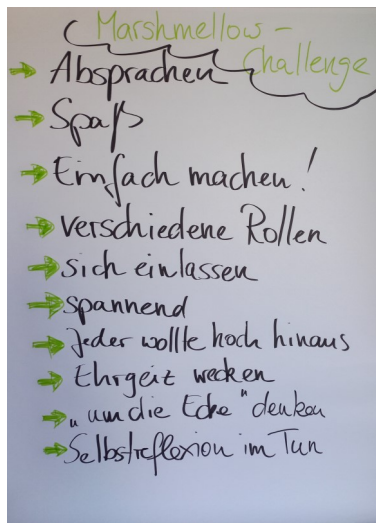 Marshmellow-
Challenge
Absprachen
Spaß
Einfach machen!
verschiedene Rollen
sich einlassen
spannend
Jeder wollte hoch hinaus
Ehrgeiz wecken
„um die Ecke" denken
Selbstreflexion im Tun